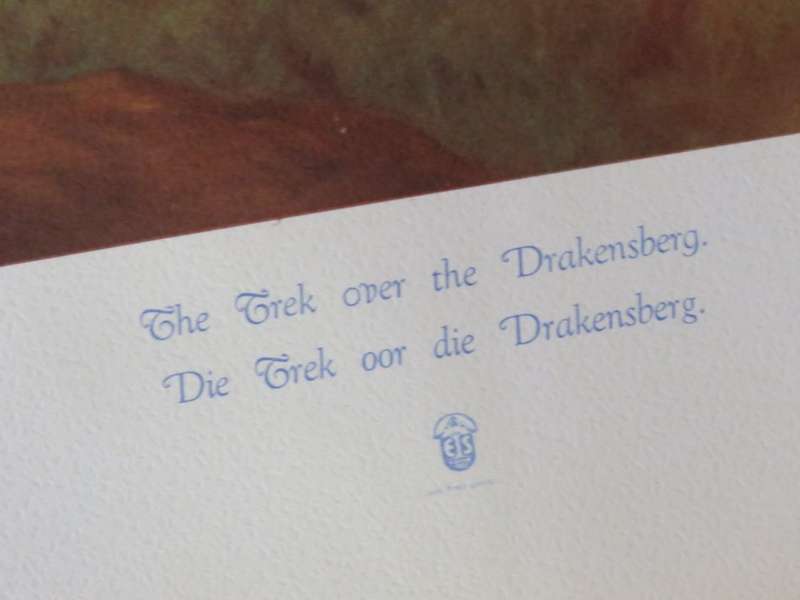 The Trek over the Drakensberg.
Die Trek oor die Drakensberg.